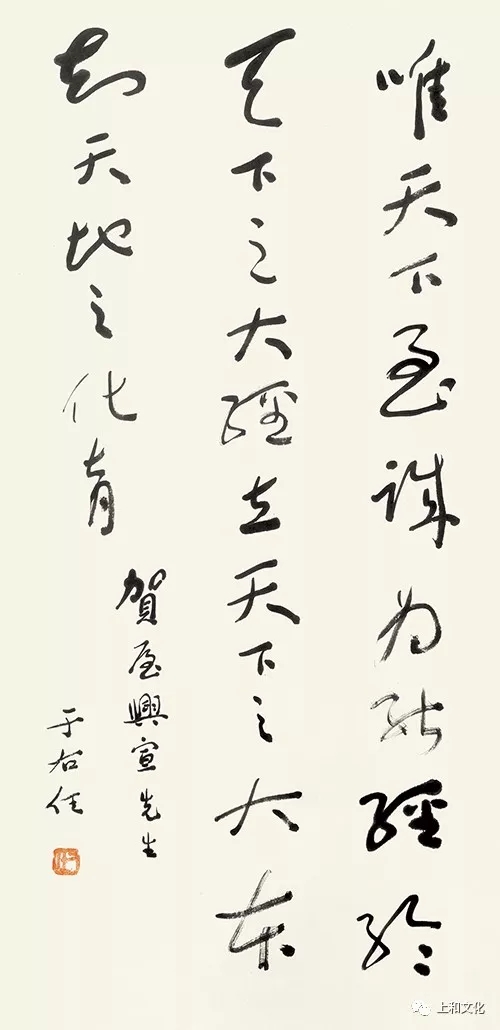 唯天下至诚为能經綸
天下之大經立天下之大本
知天地之化育
賀屋興宣先生
于右任
上和文化